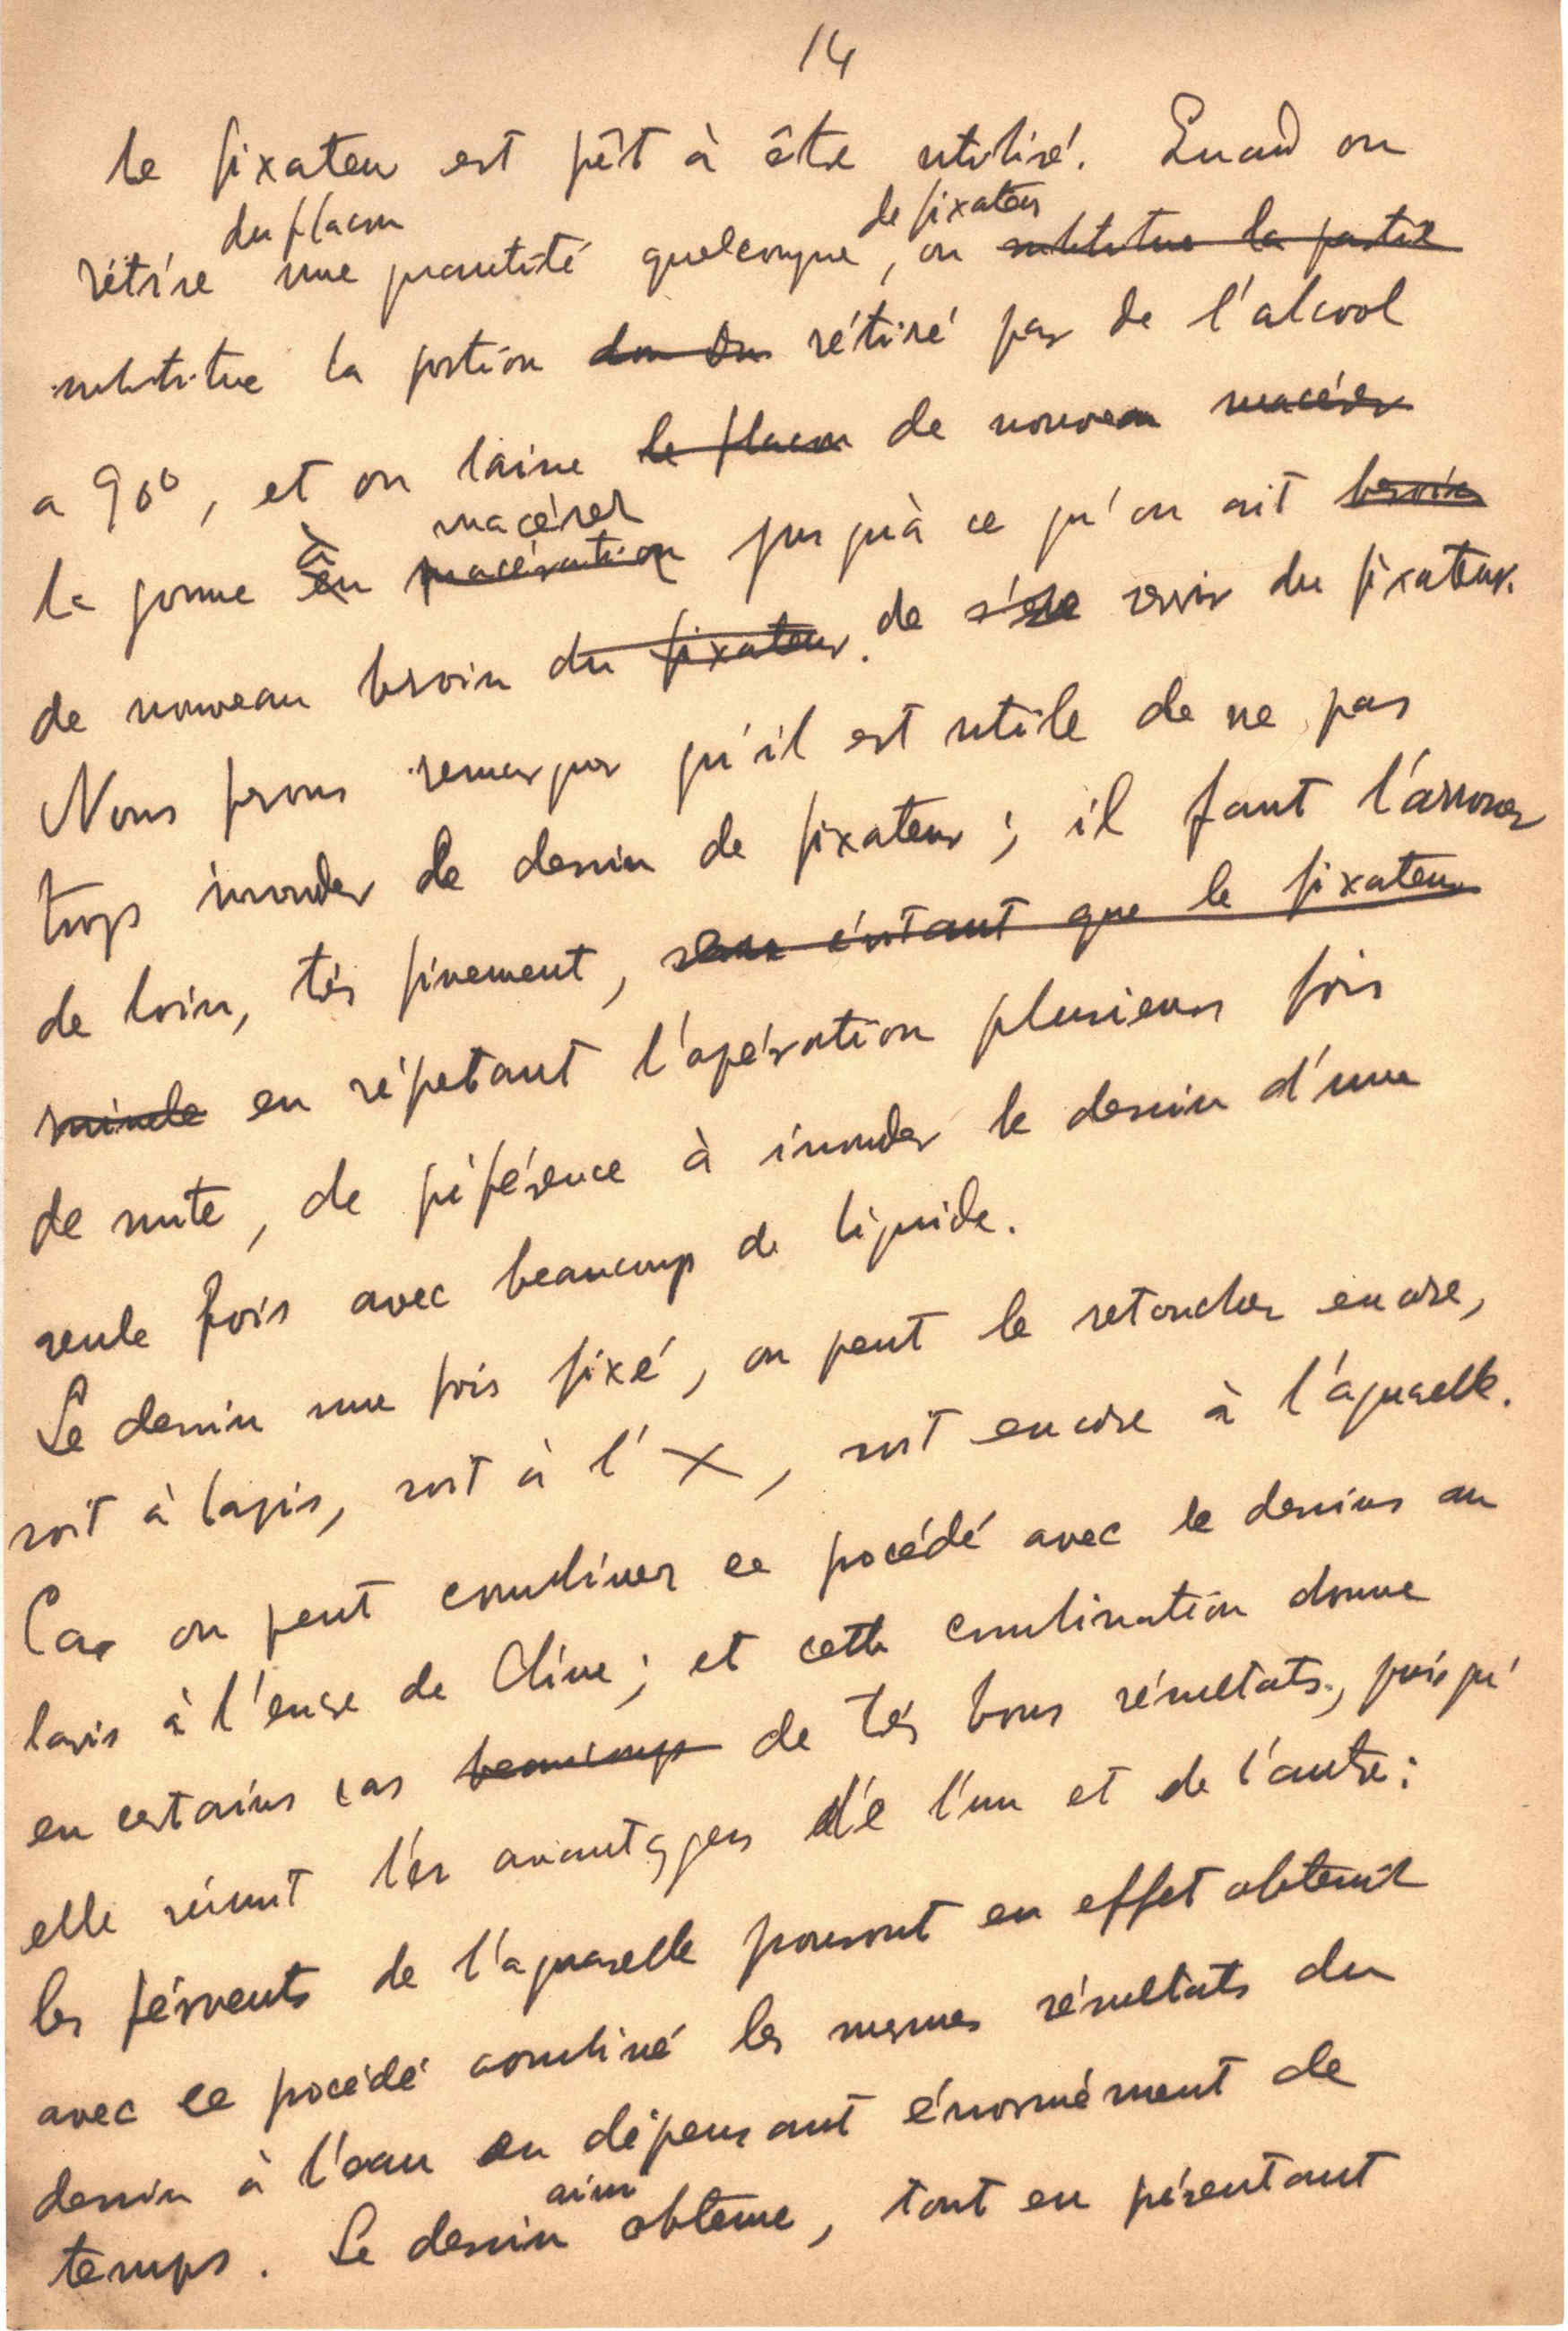 14
le fixateur est prêt à être utilisé. Quand on
du flacon de fixateur
rétire une quantité quelconque, on substitue la partie
substitue la portion rétiré par de l'alcool
a 90°, et on laisse le flacon de nouveau macérer
à macérer
la gomme en macération jusqu'à ce qu'on ait besoin
de nouveau besoin du fixateur. de servir du fixateur.
Nous ferons remarquer qu'il est utile de ne pas
trop inonder le dessin de fixateur ; il faut l'arroser
de loin, très finement, que le fixateur
en répetant l'opération plusieurs fois
de suite, de préférence à inonder le dessin d'une
seule fois avec beaucoup de liquide.
Le dessin une fois fixé, on peut le retoucher encore,
soit à lapis, soit à l'X, soit encore à l'aquarelle.
Car on peut combiner ce procédé avec le dessins au
lavis à l'encre de Chine ; et cette combination donne
en certains cas beaucoup de très bons résultats, puis qu'
elle réunit les avantages de l'un et de l'autre :
les férvents de l'aquarelle pourront en effet obtenir
avec ce procédé combiné les memes résultats du
dessin à l'eau en dépensant énormément de
ainsi
temps. Le dessin obtenue, tout en présentant